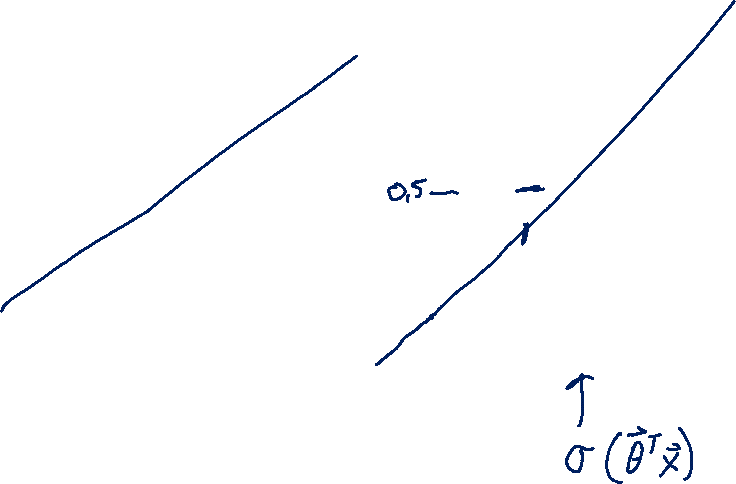 0,5
σ(θ⃗ᵀx⃗)